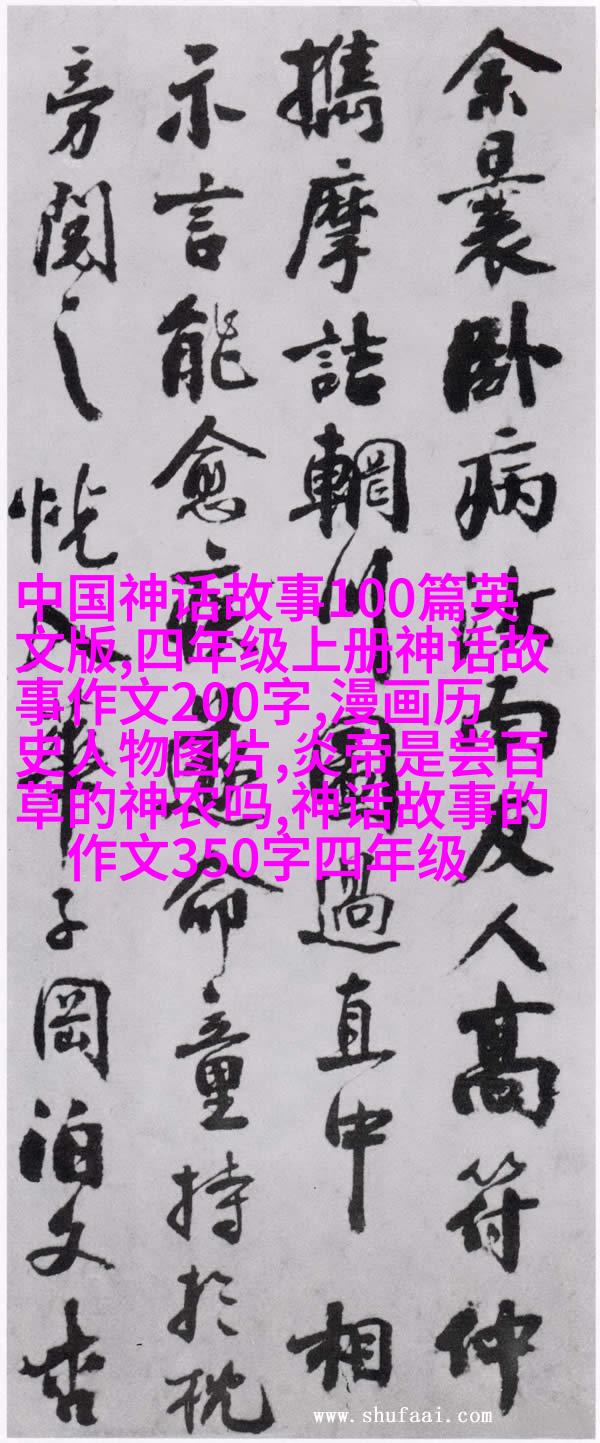 余曩卧病汝南友人高符仲
攜摩詰輞川圖過直中相
示言能愈疾遂命童持於枕
旁閱之恍入華子岡泊文杏
中国神话故事100篇英
文版,四年级上册神话故
事作文200字,漫画历
史人物图片,炎帝是尝百
草的神农吗,神话故事的
作文350字四年级
www.shufaai.com